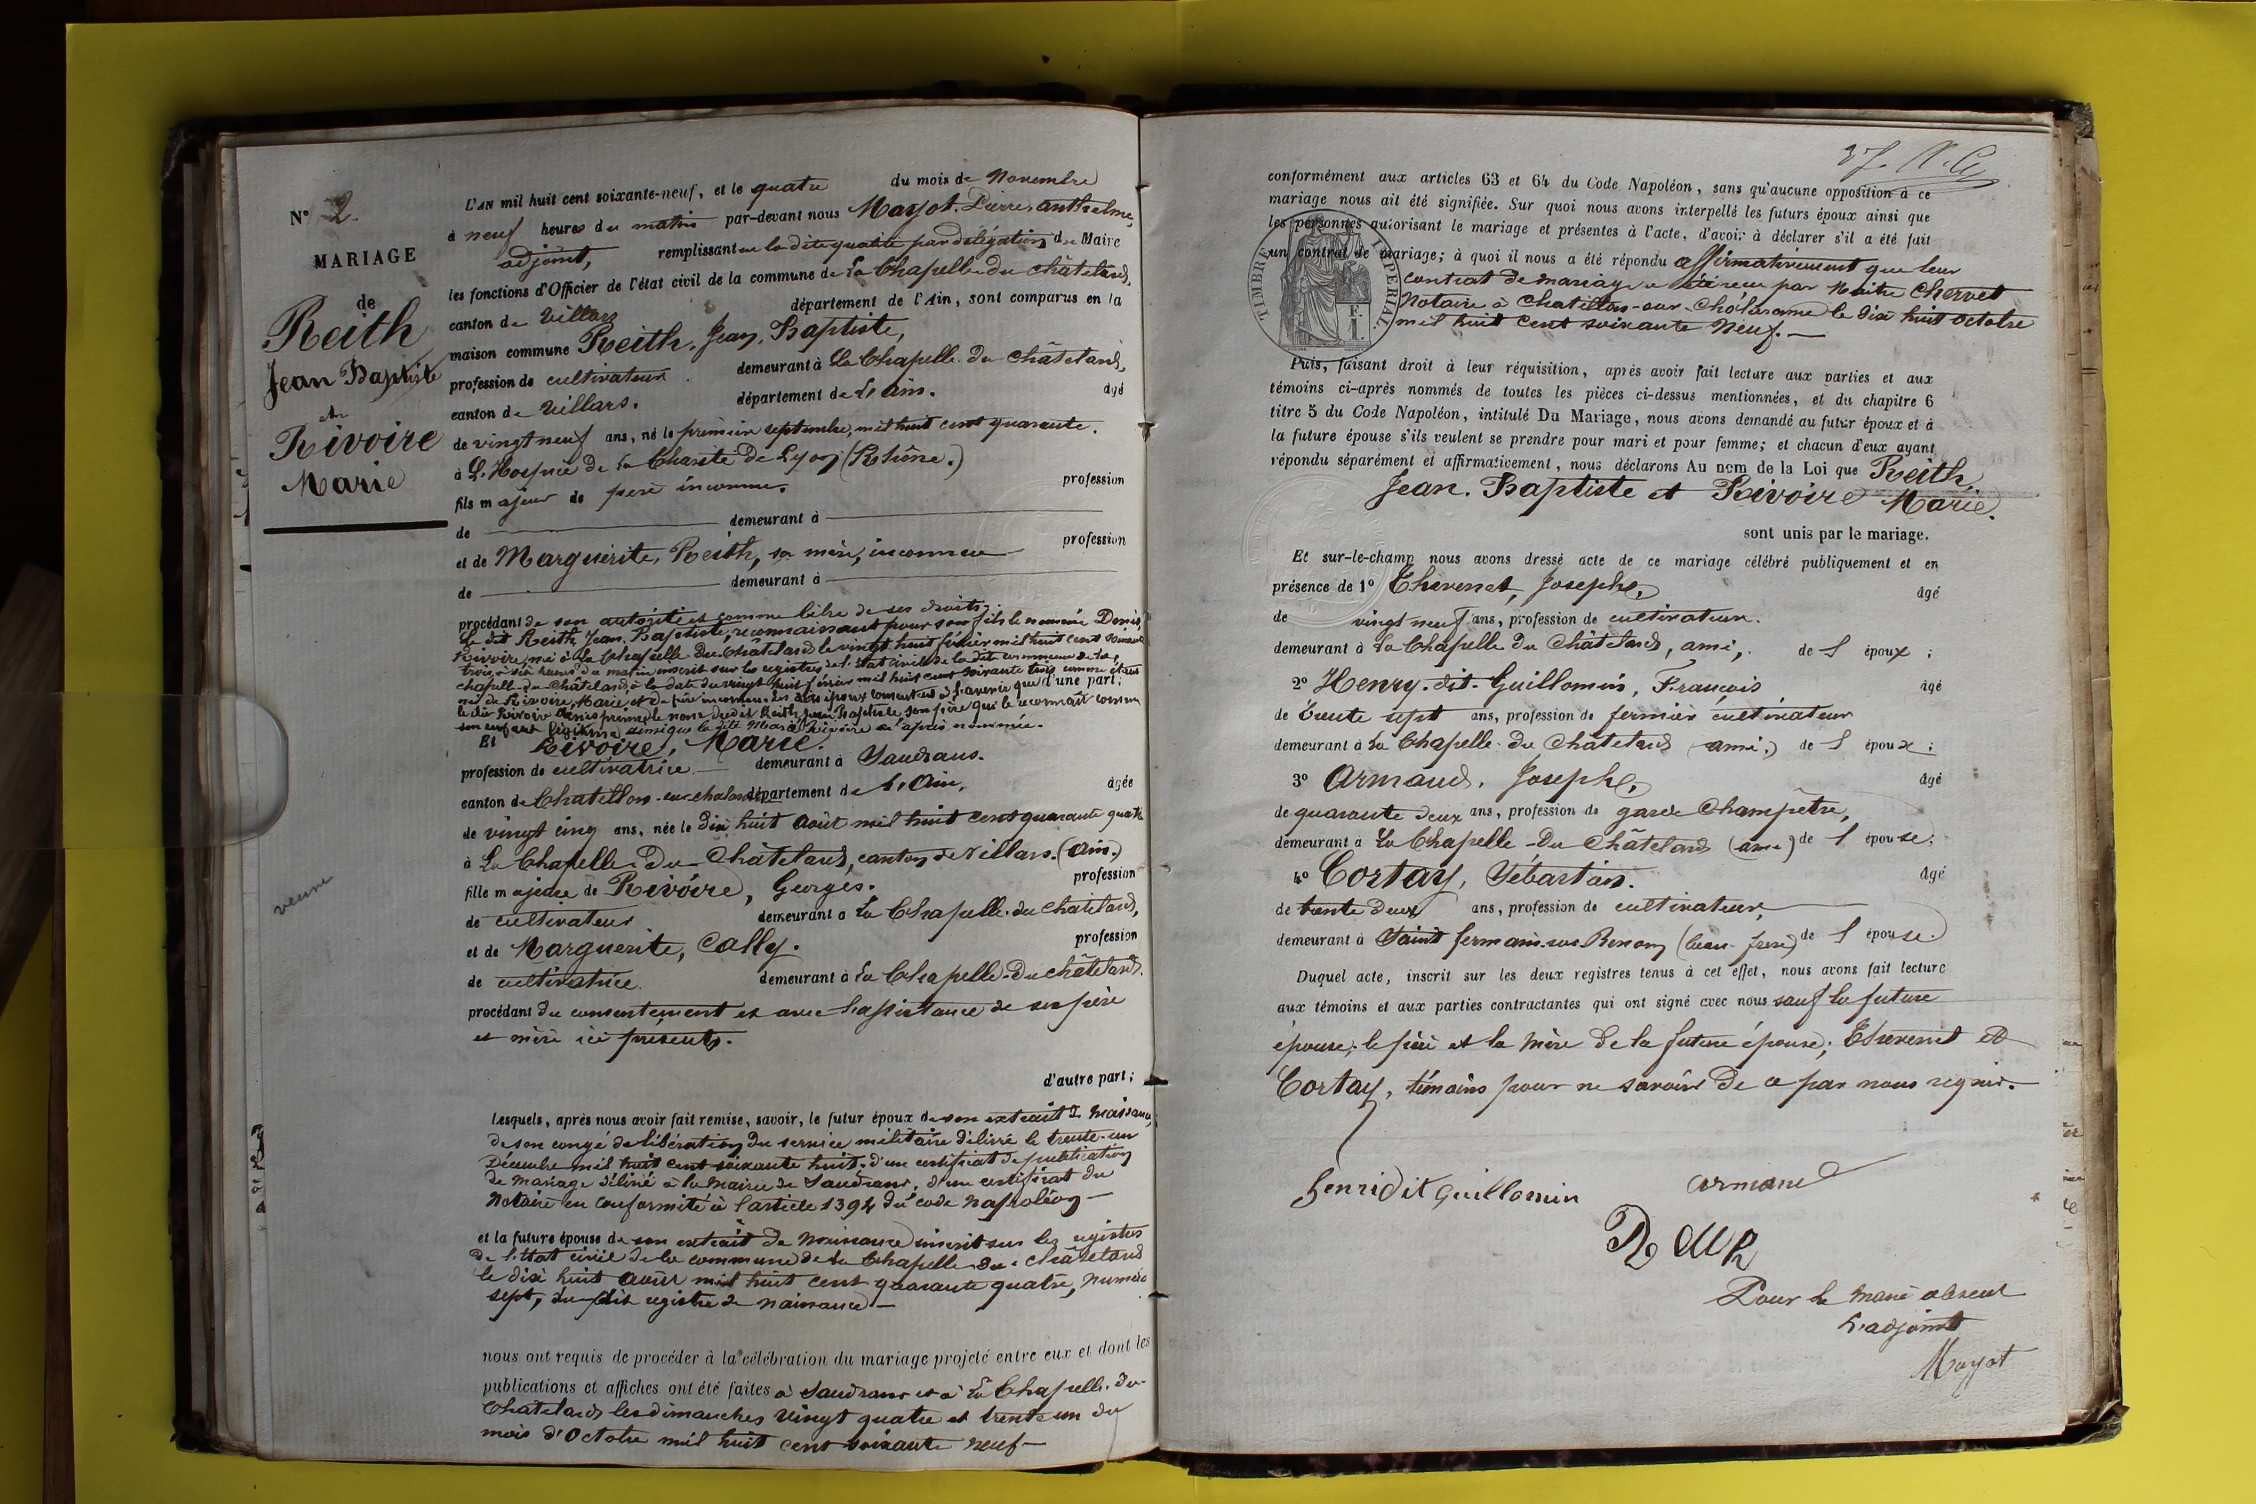 N° 2
MARIAGE
de
Reith
Jean Baptiste
et
Rivoire
Marie
L'AN mil huit cent soixante-neuf, et le quatre du mois de Novembre
à neuf heures du matin par-devant nous Mayot, Pierre, anthelme,
adjoint, remplissant en la dite qualité par délégation du Maire
les fonctions d'Officier de l'état civil de la commune de La Chapelle du Châtelard,
canton de Villars département de l'Ain, sont comparus en la
maison commune Reith, Jean, Baptiste,
profession de cultivateur demeurant à La Chapelle du Châtelard,
canton de Villars. département de L'ain. âgé
de vingt neuf ans, né le premier septembre, mil huit cent quarante.
à L'Hospice de La Charité de Lyon (Rhône.)
fils majeur de père inconnu. profession
de demeurant à
et de Marguerite, Reith, sa mère, inconnue profession
de demeurant à
procédant de son autorité et comme libre de ses droits,
Le dit Reith Jean, Baptiste, reconnaissant pour son fils le nommé Denis,
Rivoire, né à La Chapelle du Châtelard le vingt huit février mil huit cent soixante
trois, à six heures du matin inscrit sur les registres de l'état civil de la dite commune de La
chapelle du Châtelard, à la date du vingt huit février mil huit cent soixante trois comme étant
né de Rivoire, Marie, et de père inconnu. Les dits époux consentent à l'avenir que d'une part;
le dit Rivoire Denis prenne le nom du dit Reith Jean Baptiste son père qui le reconnaît comme
son enfant légitime ainsi que la dite Marie Rivoire ci après nommée.
Et Rivoire, Marie.
profession de cultivatrice demeurant à Sandrans.
canton de Chatillon-sur-chalaronne département de L'Ain, âgée
de vingt cinq ans, née le dix huit Août mil huit cent quarante quatre
à La Chapelle-Du-Châtelard, canton de Villars. (Ain.)
fille majeure de Rivoire, Georges. profession
de cultivateur demeurant à La Chapelle du Chatelard,
et de Marguerite, Cally. profession
de cultivatrice demeurant à La Chapelle-Du châtelard.
procédant du consentement et avec l'assistance de ses père
et mère ici présents.
d'autre part;
veuve
Lesquels, après nous avoir fait remise, savoir, le futur époux de son extrait de Naissance,
de son congé de libération du service militaire délivré le trente-un
Décembre mil huit cent soixante huit, d'un certificat de publication
de mariage délivré à la Mairie de Sandrans, d'un certificat du
Notaire en conformité à l'article 1394 du code Napoléon
et la future épouse de son extrait de Naissance inscrit sur les registres
de l'état civil de la commune de La Chapelle-du-Châtelard
le dix huit Août mil huit cent quarante quatre, numéro
sept, du dit registre de naissance
nous ont requis de procéder à la célébration du mariage projeté entre eux et dont les
publications et affiches ont été faites à Sandrans et à La Chapelle-du-
Chatelard les dimanches vingt quatre et trente un du
mois d'Octobre mil huit cent soixante neuf
conformément aux articles 63 et 64 du Code Napoléon, sans qu'aucune opposition à ce
mariage nous ait été signifiée. Sur quoi nous avons interpellé les futurs époux ainsi que
les personnes autorisant le mariage et présentes à l'acte, d'avoir à déclarer s'il a été fait
un contrat de mariage; à quoi il nous a été répondu affirmativement que leur
contrat de mariage a été reçu par Maître Chervet
Notaire à Chatillon-sur-Chalaronne le dix huit octobre
mil huit cent soixante Neuf.
TIMBRE IMPERIAL
Puis, faisant droit à leur réquisition, après avoir fait lecture aux parties et aux
témoins ci-après nommés de toutes les pièces ci-dessus mentionnées, et du chapitre 6
titre 5 du Code Napoléon, intitulé Du Mariage, nous avons demandé au futur époux et à
la future épouse s'ils veulent se prendre pour mari et pour femme; et chacun d'eux ayant
répondu séparément et affirmativement, nous déclarons Au nom de la Loi que Reith,
Jean, Baptiste et Rivoire Marie.
sont unis par le mariage.
Et sur-le-champ nous avons dressé acte de ce mariage célébré publiquement et en
présence de 1° Thevenet, Joseph, âgé
de vingt neuf ans, profession de cultivateur.
demeurant à La Chapelle du Châtelard, ami, de l époux;
2° Henry-dit-Guillomin, François âgé
de trente sept ans, profession de fermier cultivateur
demeurant à La Chapelle-du Châtelard (ami.) de l époux;
3° Armand, Joseph, âgé
de quarante deux ans, profession de garde Champêtre,
demeurant à La Chapelle-du Châtelard (ami) de l épouse;
4° Cortay, Sébastien. âgé
de trente deux ans, profession de cultivateur,
demeurant à Saint Germain-sur-Renon (beau-frère) de l épouse.
Duquel acte, inscrit sur les deux registres tenus à cet effet, nous avons fait lecture
aux témoins et aux parties contractantes qui ont signé avec nous sauf la future
épouse, le père et la mère de la future épouse; Thevenet et
Cortay, témoins pour ne savoir de ce par nous requis.
henridit guillomin
armand
Pour le maire absent
L'adjoint
Mayot